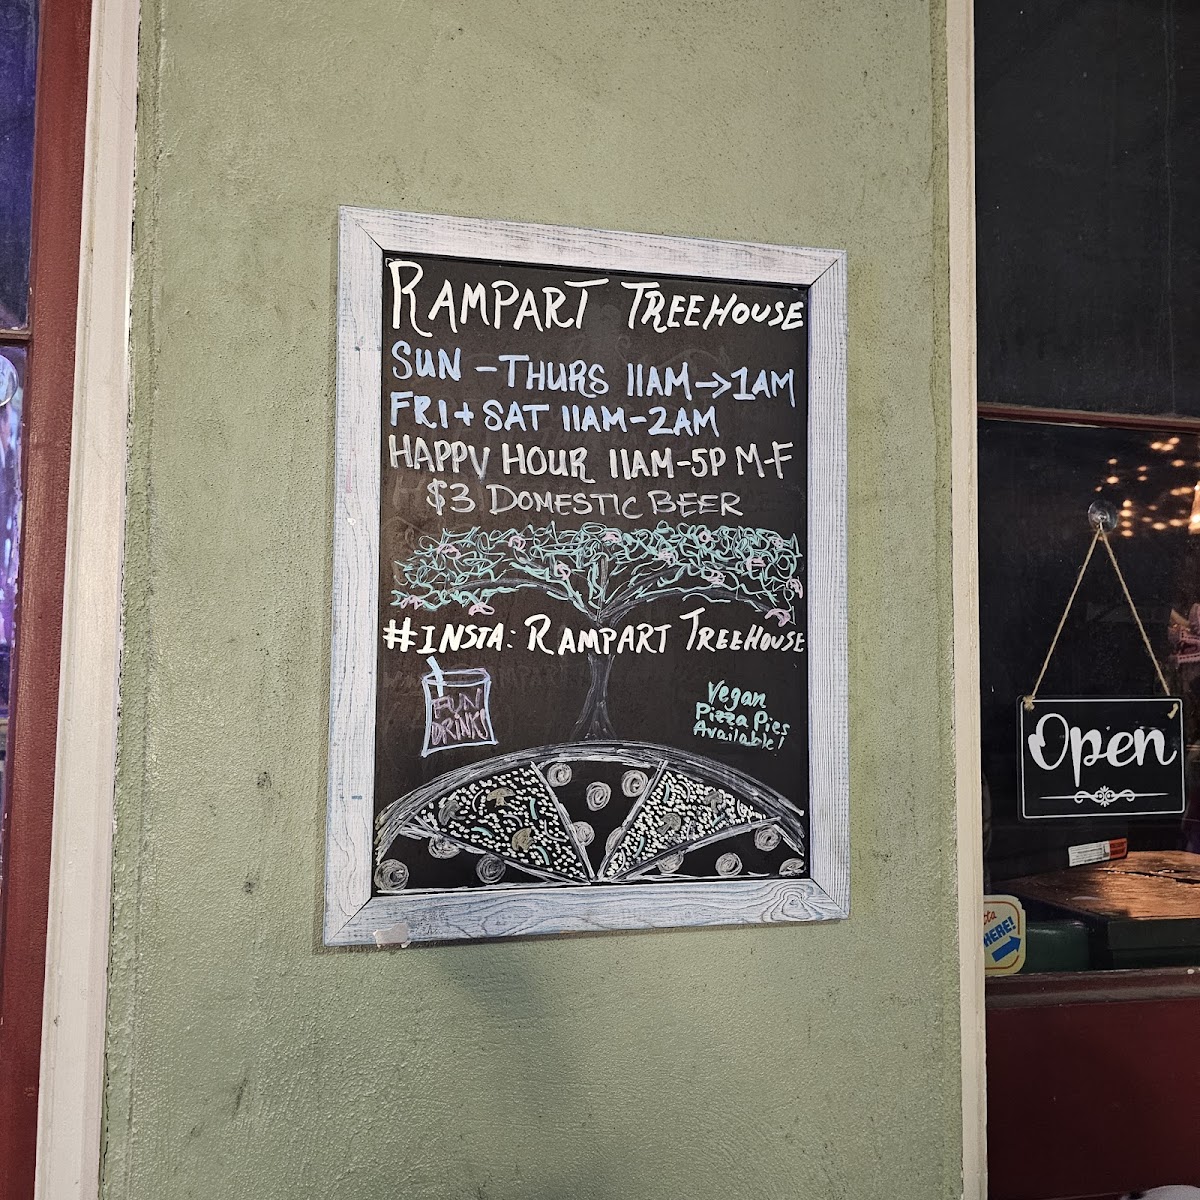 RAMPART TREEHOUSE
SUN - THURS 11AM→1AM
FRI + SAT 11AM-2AM
HAPPY HOUR 11AM-5P M-F
$3 DOMESTIC BEER
#INSTA: RAMPART TREEHOUSE
FUN
DRINKS
Vegan
Pizza Pies
Available!
Open
HERE!